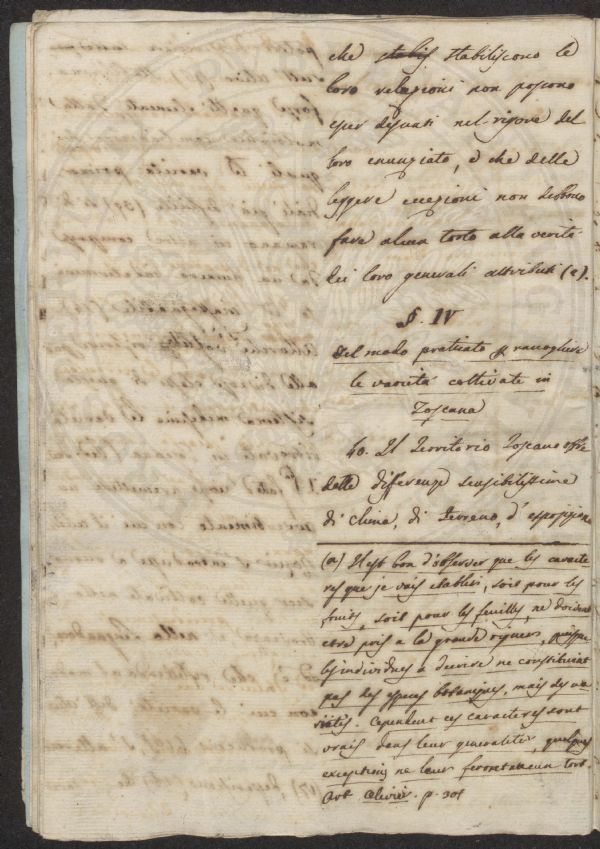 che stabilis stabiliscono le
loro relazioni non possono
esser desunti nel rigore del
loro enunziato, e che delle
leggere eccezioni non debbono
fare alcun torto alla verità
dei loro generali attributi (a).
§. IV
Del modo praticato p raccogliere
le varietà coltivate in
Toscana
40. Il Territorio Toscano offre
delle differenze sensibilissime
di clima, di terreno, d'esposizione
(a) Il est bon d'observer que les caracte
res que je vais etablir, soit pour les
fruits, soit pour les feuilles, ne doivent
etre pris a la grande rigueur, puisque
les individus a decrire ne constituent
pas des especes botaniques, mais des va
rietés. Cependent ces caracteres sont
vrais dans leur generalité, quelques
exceptions ne leur feront aucun tort.
Art Olivier. p. 301